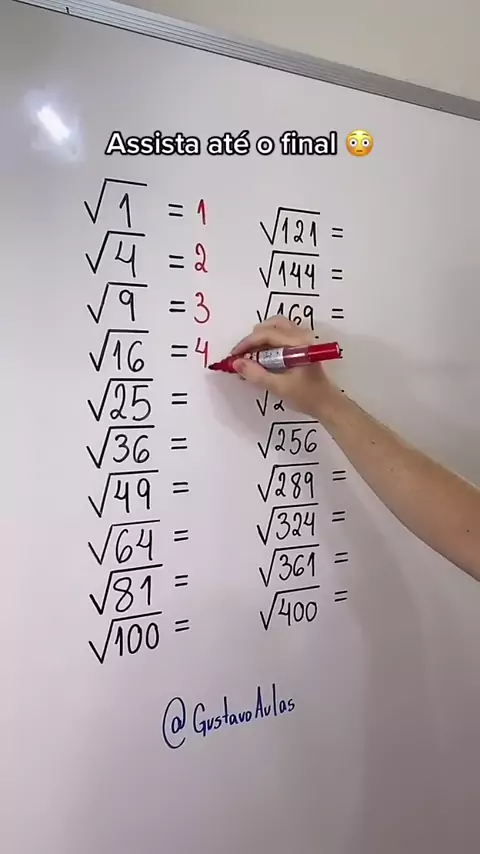 Assista até o final 😳
√1 = 1
√4 = 2
√9 = 3
√16 = 4
√25 =
√36 =
√49 =
√64 =
√81 =
√100 =
√121 =
√144 =
√169 =
√256
√289 =
√324 =
√361 =
√400 =
@GustavoAulas